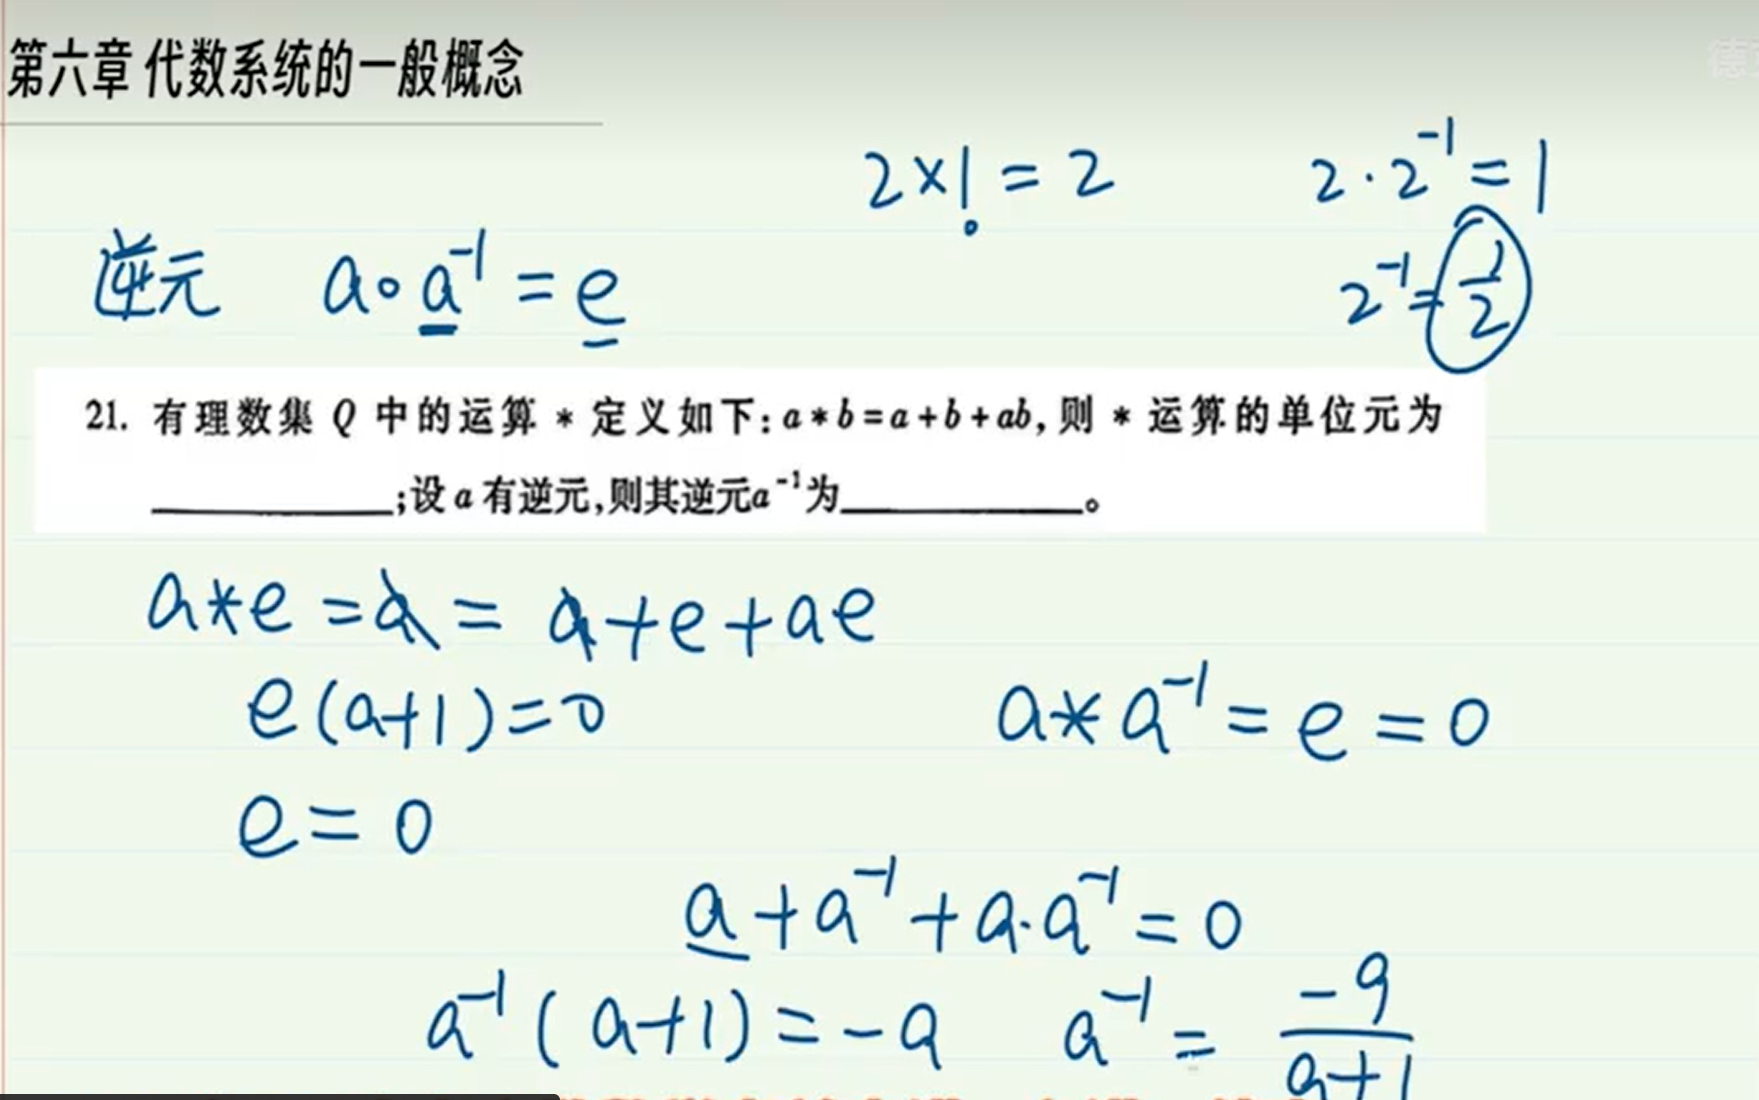 第六章 代数系统的一般概念
德
2×1=2
2·2⁻¹=1
逆元 a∘a⁻¹=e
2⁻¹=1/2
21. 有理数集 Q 中的运算 * 定义如下:a*b=a+b+ab,则 * 运算的单位元为
____________;设 a 有逆元,则其逆元a⁻¹为____________。
a*e=a=a+e+ae
e(a+1)=0
a*a⁻¹=e=0
e=0
a+a⁻¹+a·a⁻¹=0
a⁻¹(a+1)=-a a⁻¹=-a/a+1